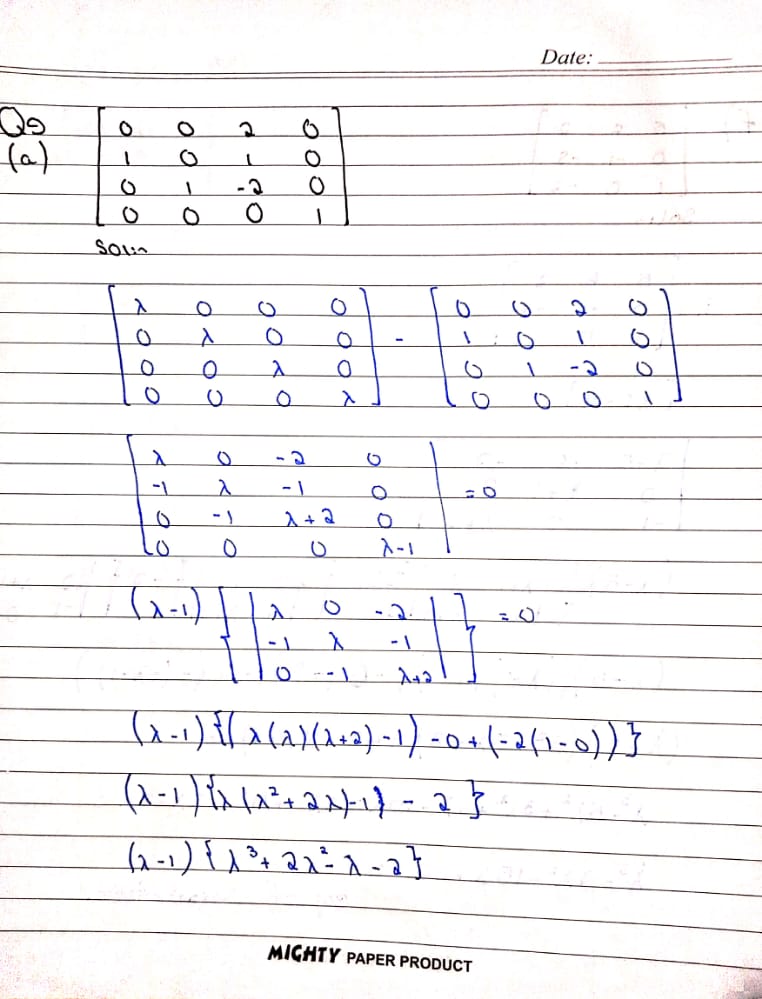 Date:
Q5
(a)
0 0 2 0
1 0 1 0
0 1 -2 0
0 0 0 1
Sol:n
λ 0 0 0 0 0 2 0
0 λ 0 0 - 1 0 1 0
0 0 λ 0 0 1 -2 0
0 0 0 λ 0 0 0 1
λ 0 -2 0
-1 λ -1 0 = 0
0 -1 λ+2 0
0 0 0 λ-1
(λ-1) { | λ 0 -2 | } = 0
-1 λ -1
0 -1 λ+2
(λ-1) {( λ(λ)(λ+2) -1) -0 + (-2(1-0))}
(λ-1) {λ(λ²+2λ)-1} - 2 }
(λ-1) { λ³+ 2λ²- λ - 2}
MIGHTY PAPER PRODUCT